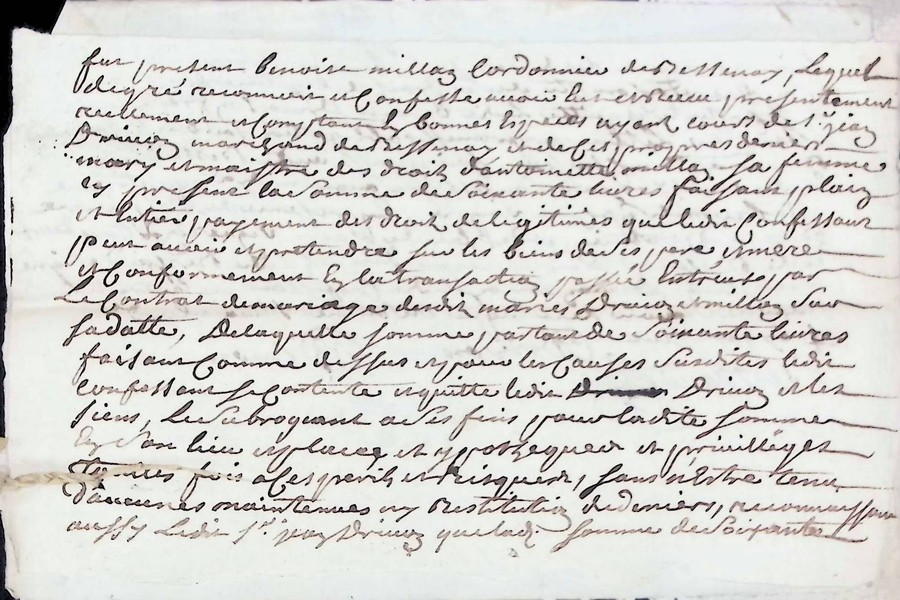 fut present Benoist millaz Cordonnier de Bessenay, Lequel
de gré reconnoit et Confesse avoir Eut et Receu presentement
reellement et Comptant En bonnes Especes ayant cours de Sr jean
marchand de Bessenay et de ces propres deniers
mary et maistre des droit d'antoinette milla sa femme
icy present la Somme de Soixante livres faisant plain
et Entier payement des droit de legitimes que ledit Confessant
peut avoir et pretendre sur les biens de Ses pere et mere
et Conformement En la transaction passée Entreux par
Le Contrat de mariage desdit mariés et millaz Sous
sa datte, De laquelle somme partant de Soixante livres
faisant Comme dessus et pour les Causes Susdites ledit
confessant se Contente et quitte ledit et les
siens, Le Subrogeant a Ses fins pour ladite somme
En Son lieu et place et ypotheques et privilleges
Toutes fois a Ces perils et Risques, sans n'Estre tenu
d'aucunes maintenues ny Restitution de deniers, reconnoissant
aussy Ledit Sr jean que lad. somme de Soixante